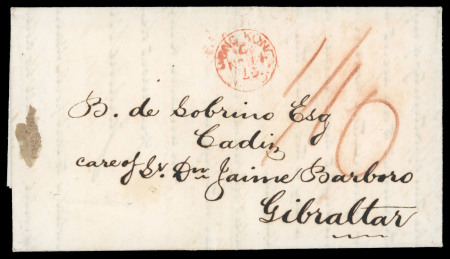 HONG KONG
B. de Sobrino Esq
Cadiz
care of Sr. Dn Jaime Barboro
Gibraltar